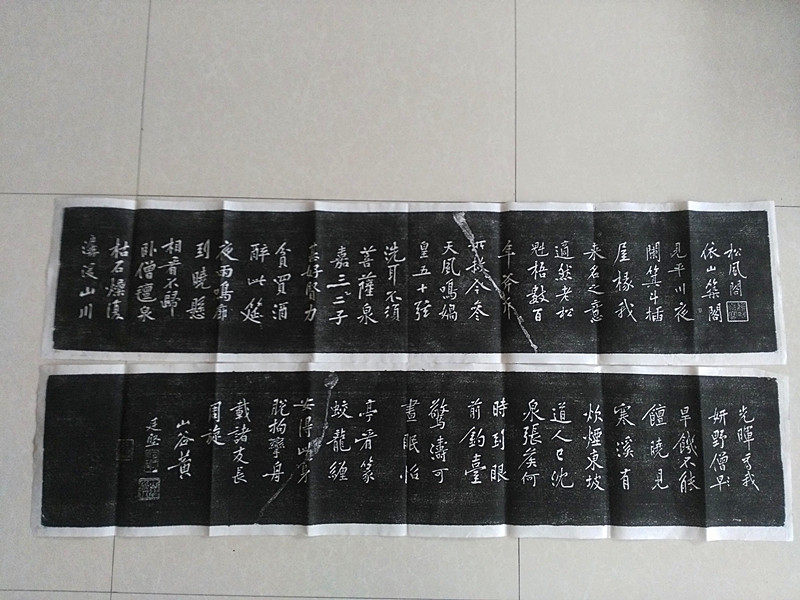 松風閣
依山築閣
見平川夜
闌箕斗插
屋椽我
来名之意
適然老松
魁梧數百
年斧斤
所赦今參
天風鳴媧
皇五十弦
洗耳不須
菩薩泉
嘉二三子
甚好賢力
貪買酒
醉此筵
夜雨鳴廊
到曉懸
相看不歸
卧僧氊泉
枯石燥復
潺湲山川
光暉為我
妍野僧早
旱饑不能
饘曉見
寒溪有
炊煙東坡
道人已沈
泉張侯何
時到眼
前釣臺
驚濤可
晝眠怡
亭看篆
蛟龍纏
安得此身
脱拘攣舟
載諸友長
周旋
山谷黄
庭堅